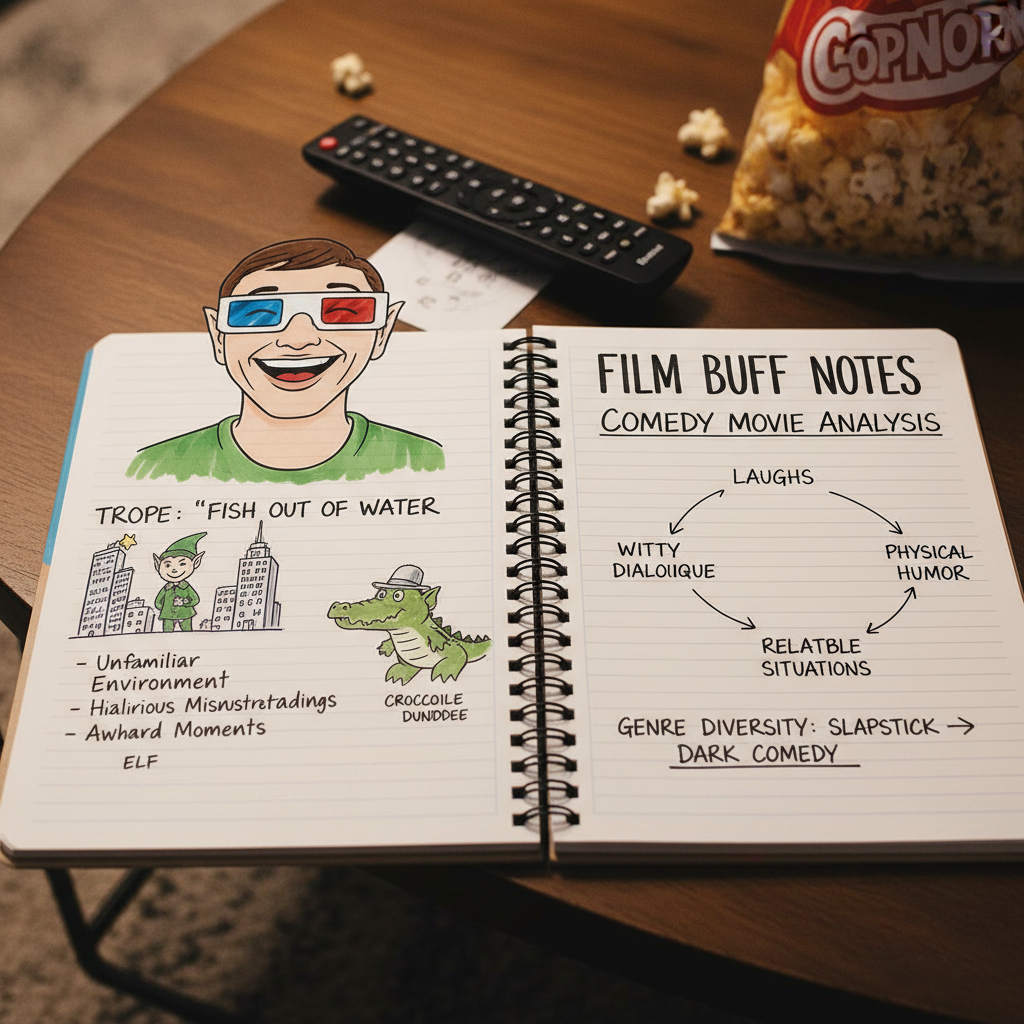 COPNORN
TROPE: "FISH OUT OF WATER
- Unfamiliar
Environment
- Hialirious Misnustretadings
- Awhard Moments
ELF
CROCCOILE
DUNDDEE
FILM BUFF NOTES
COMEDY MOVIE ANALYSIS
LAUGHS
WITTY
DIALOIIQUE
PHYSICAL
HUMOR
RELATBLE
SITUATIONS
GENRE DIVERSITY: SLAPSTICK →
DARK COMEDY